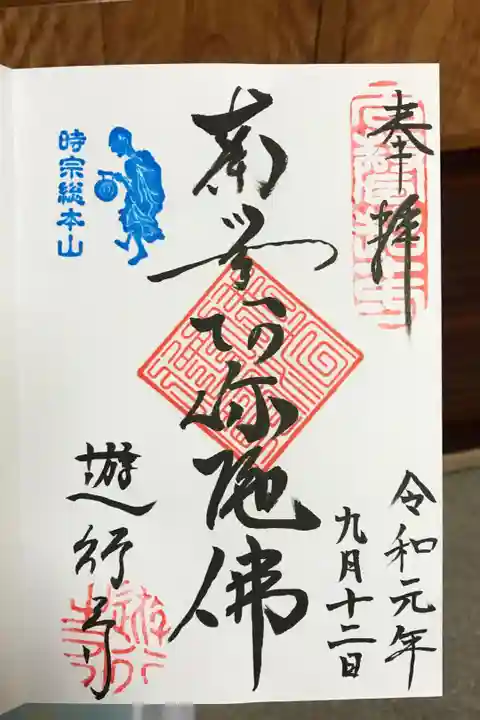 奉拝
令和元年
九月十二日
南無阿弥陀佛
時宗総本山
遊行寺